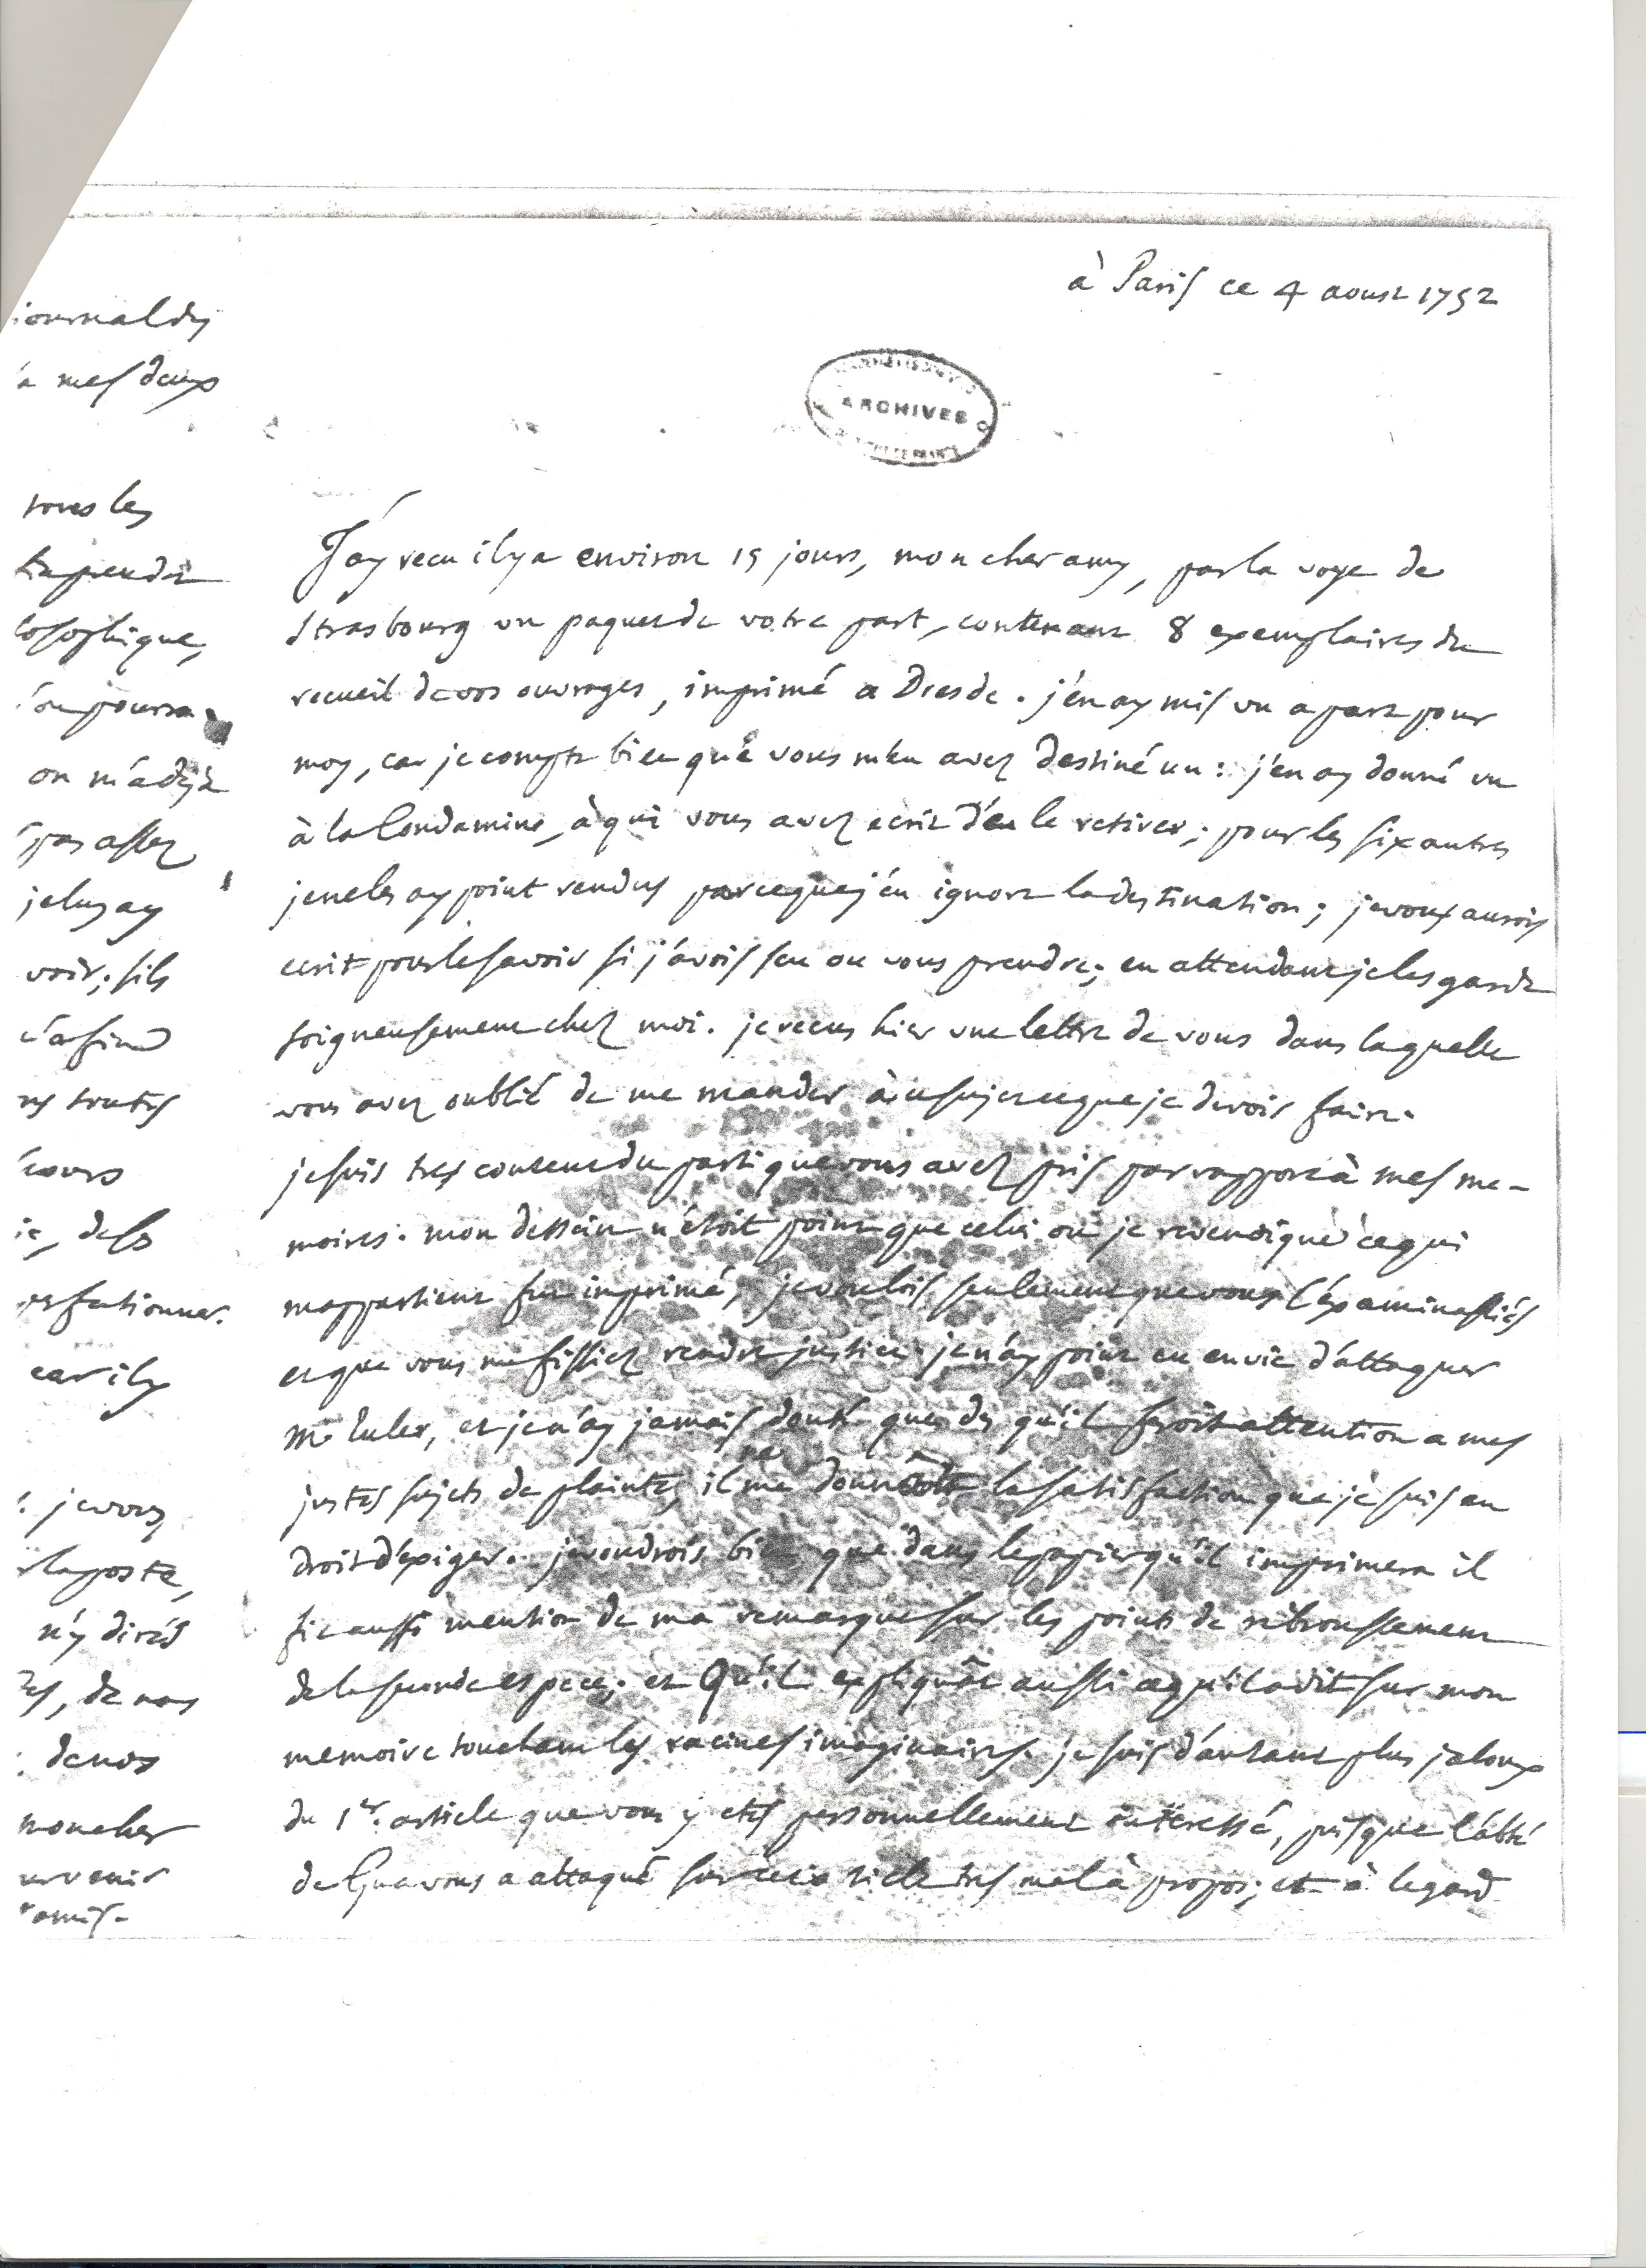 à Paris ce 4 aoust 1752
ARCHIVES
J'ay recu il y a environ 15 jours, mon cher amy, par la voye de
Strasbourg un paquet de votre part, contenant 8 exemplaires du
recueil de vos ouvrages, imprimé a Dresde. j'en ay mis un a part pour
moy, car je compte bien que vous m'en avez destiné un: j'en ay donné un
à la Condamine, à qui vous avez ecrit d'en le retirer; pour les six autres
je ne les ay point rendus parceque j'en ignore la destination; je vous aurois
ecrit pour le savoir si j'avois seu ou vous prendre; en attendant je les garde
soigneusement chez moi. je recus hier une lettre de vous dans laquelle
vous avez oublié de me mander à ce sujet ce que je devois faire.
je suis tres content du parti que vous avez pris par rapport à mes me-
moires. mon dessein n'étoit point que celui où je revendique ce qui
m'appartient fut imprimé, je voulois seulement que vous l'examinassiés
et que vous me fissiez rendre justice. je n'ay point eu envie d'attaquer
Mr Euler, et je n'ay jamais douté que dès qu'il feroit attention a mes
justes sujets de plainte, il ne me donnât la satisfaction que je suis en
droit d'exiger. je voudrois bien que dans le papier qu'il imprimera il
fit aussi mention de ma remarque sur les points de rebroussement
de la seconde espece; et qu'il expliquât aussi ce qu'il a dit sur mon
memoire touchant les racines imaginaires. je suis d'autant plus jaloux
du 1er. article que vous y etes personnellement interessé, puisque l'abbé
de Gua vous a attaqué sur cet article tres mal à propos; et à legard
journal des
à mes deux
tous les
losophique,
on pourra
on m'a deja
pas assez
je luy ay
voir; s'ils
afin
toutes
cours
de la
perfectionner.
car il y
je vous
la poste,
n'y dirés
de nous
de vos
mon cher